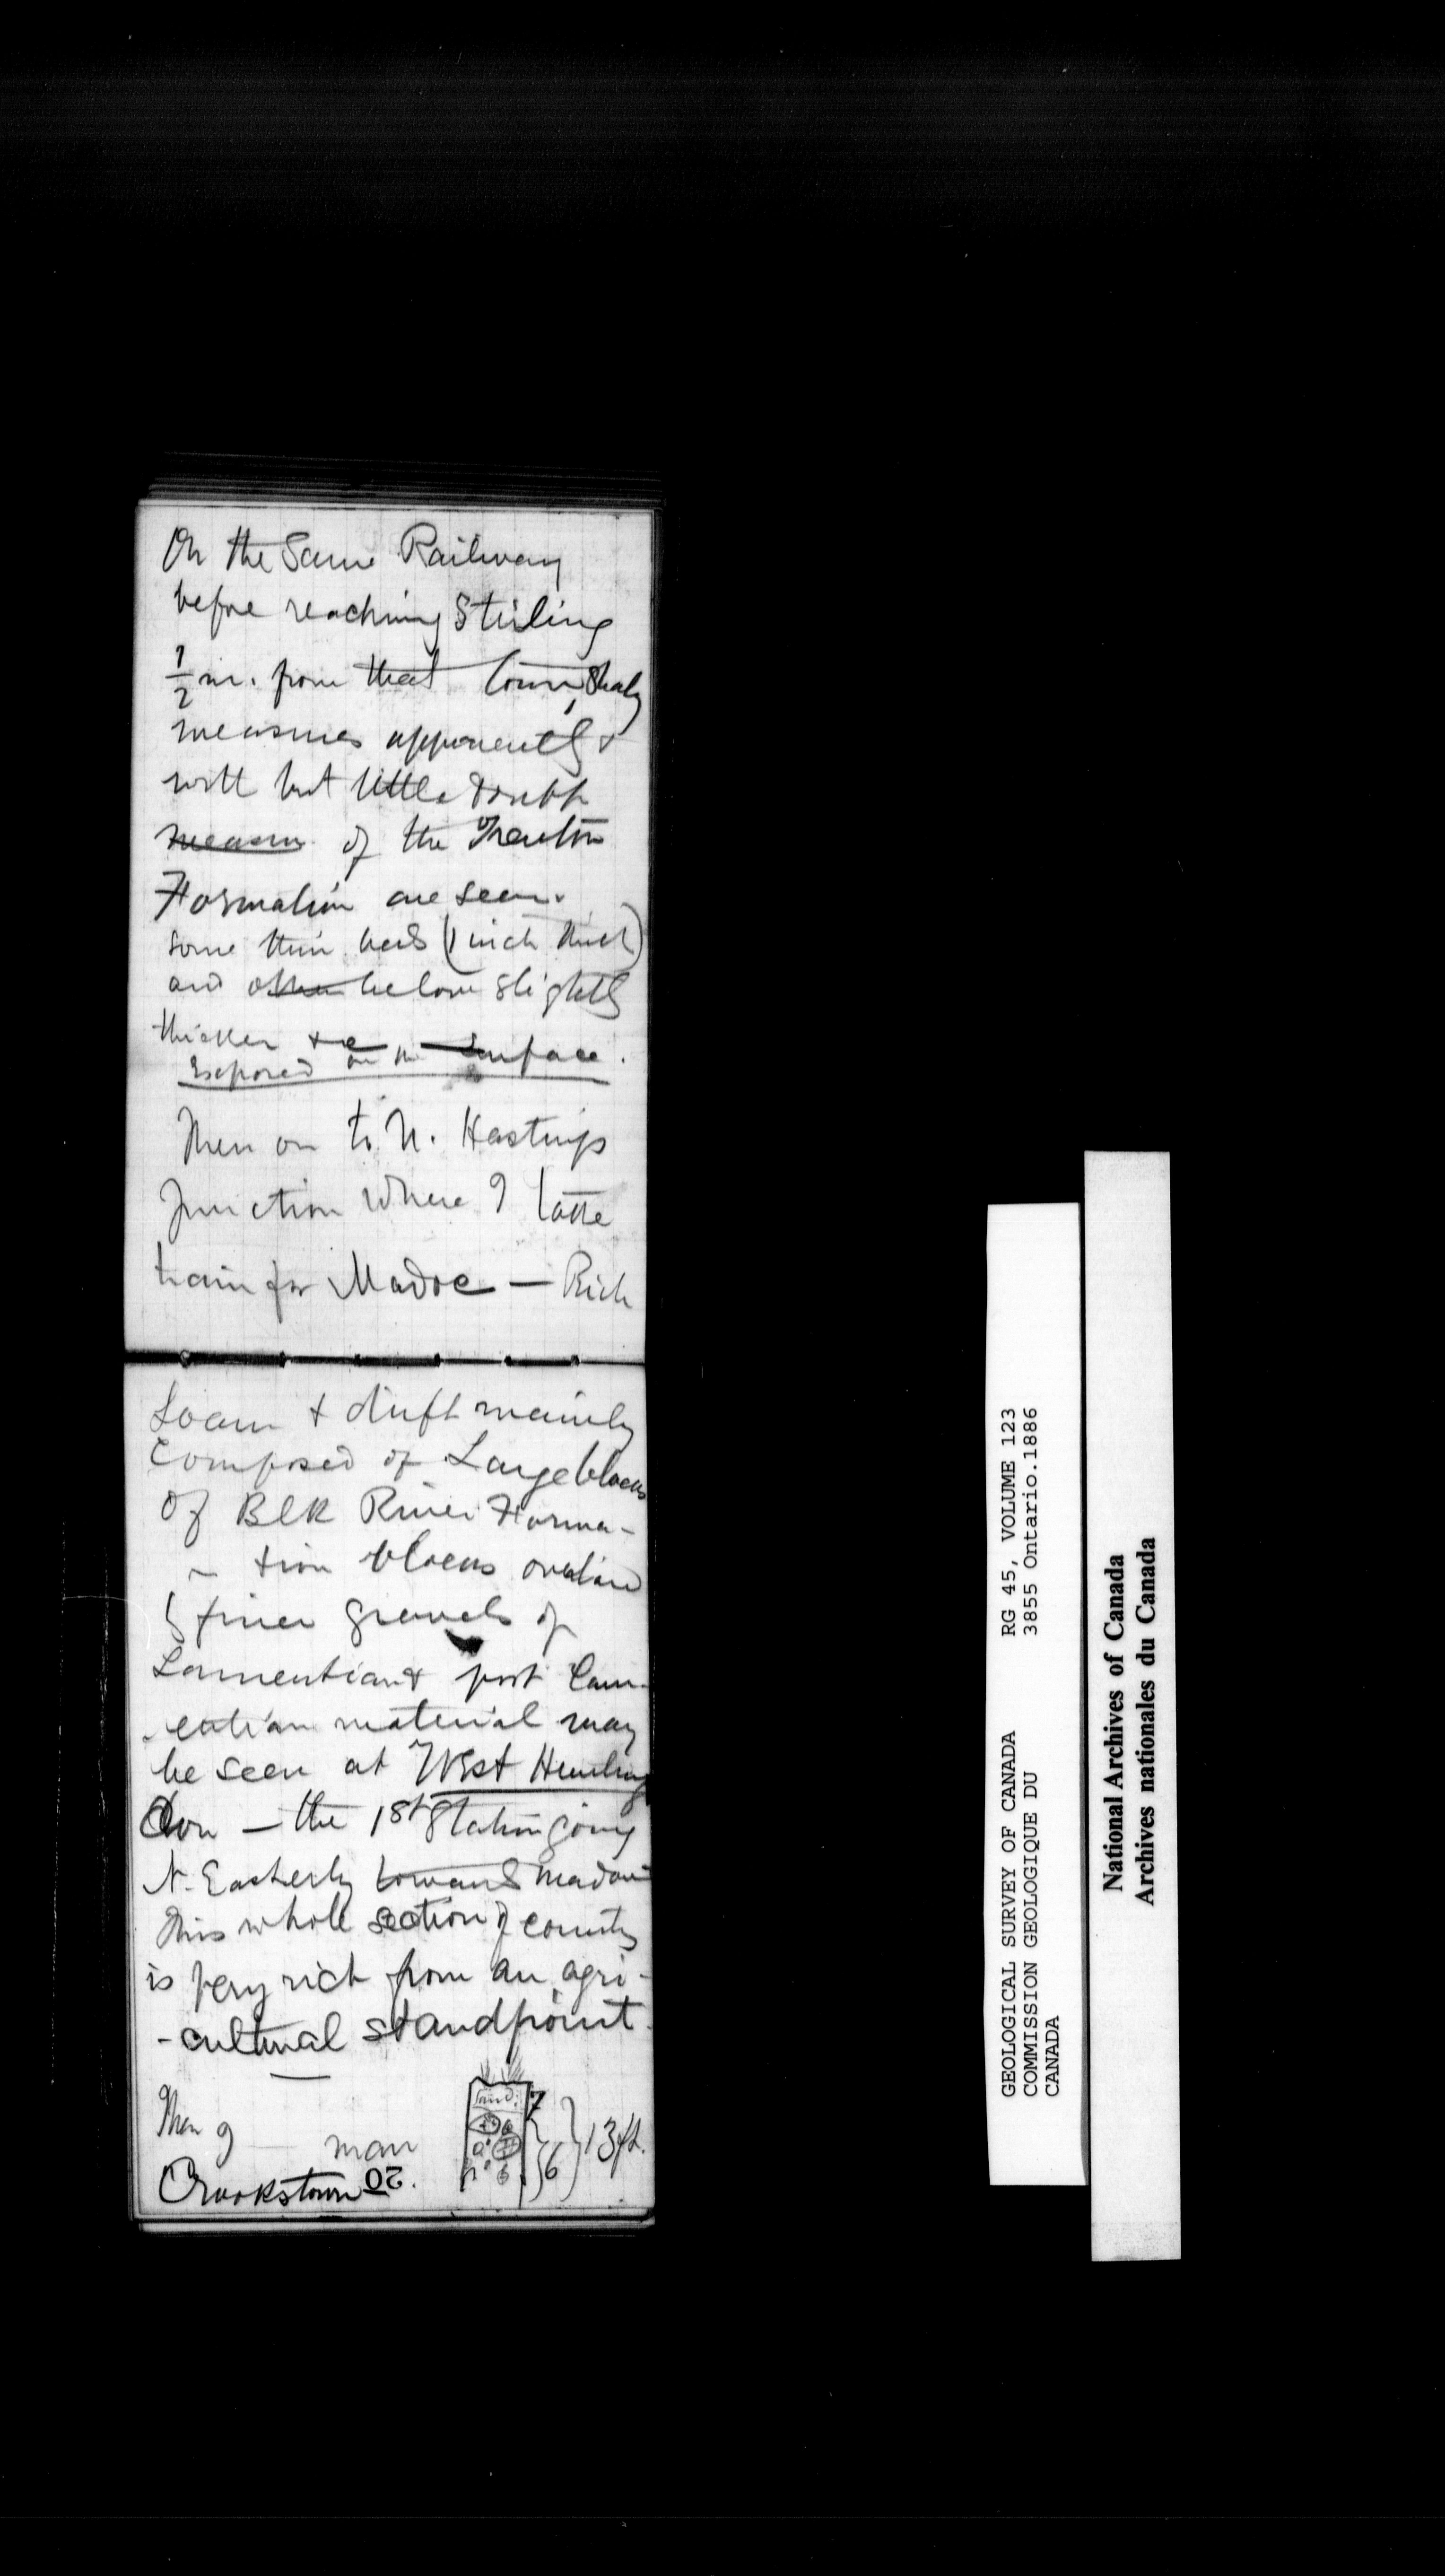 On the Same Railway
before reaching Stirling
1/2 m. from that town, Shaly
measures apparently &
with but little doubt
measures of the Trenton
Formation are seen.
some thin beds (1 inch thick)
and other below slightly
thicker & surface.
Exposed on the
Then on to N. Hastings
Junction where I take
train for Madoc — Rich
Loam & drift mainly
composed of Large blocks
of Blk River Forma-
- tion blocks overlaid
by finer gravels of
Laurentian & post Laur-
-entian material may
be seen at West Hunting
don — the 1st Station going
N. Easterly towards Madoc
This whole section of country
is very rich from an agri-
-cultural standpoint.
Then 9 man
Crookstown 20.
Sand. 7
6 13 ft.
GEOLOGICAL SURVEY OF CANADA RG 45, VOLUME 123
COMMISSION GEOLOGIQUE DU 3855 Ontario.1886
CANADA
National Archives of Canada
Archives nationales du Canada